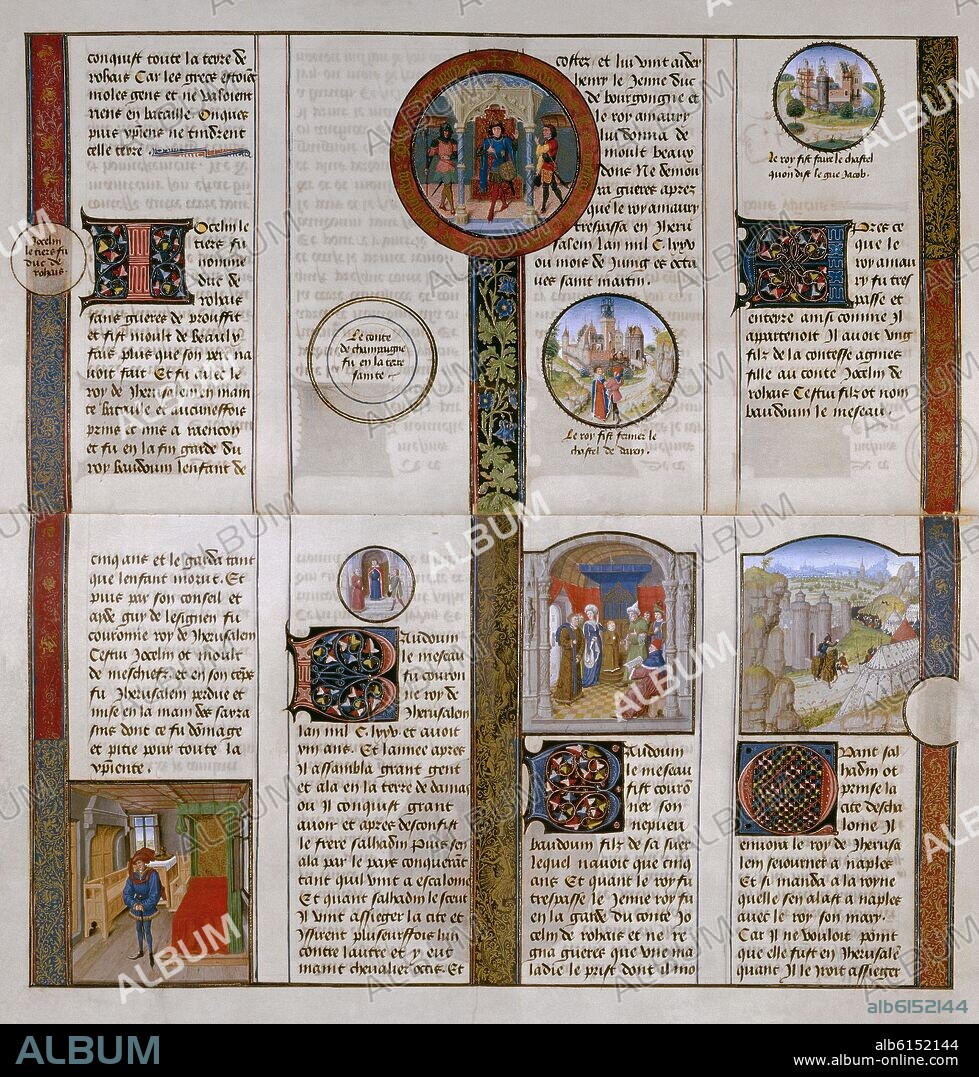 conquist toute la terre de
rohais Car les grecs estoiēt
moles gens et ne valoient
riens en bataille. Oncques
puis xp̄iens ne tindrent
celle terre
Jocelin
le tiers fu
duc de
rohais.
Jocelin le
tiers fu
nomme
duc de
rohais
sans gueres de prouffit
et fist moult de beaulx
fais plus que son pere na
uoit fait. Et fu auec le
roy de Jherusalem en main
te bataille et aucuneffois
prins et mis a raencon
et fu en la fin garde du
roy baudouin lenfant de
Le conte
de champaigne
fu en la terre
sainte.
costez et lui vint aidier
henry le Jenne duc
de bourgongne et
le roy amaury
lui donna de
moult beaux
dons Ne demou
ra gueres aprez
que le roy amaury
trespassa en Jheru
salem lan mil C. lxxv
ou mois de Juing es octa
ues saint martin.
Le roy fist fermer le
chastel de daron.
le roy fist faire le chastel
quon dist le gue Jacob.
Apres ce
que le
roy amau
ry fu tres
passe et
enterre ainsi comme il
appartenoit Il auoit vng
filz de la contesse agnies
fille au conte Jocelin de
rohais Cestui filz ot nom
baudouin le meseau.
cinq ans et le garda tant
que lenfant morut. Et
puis par son conseil et
ayde guy de lesignen fu
couronne roy de Jherusalem
Cestui Jocelin ot moult
de meschiefz et en son tēps
fu Jherusalem perdue et
mise en la main des sarra
sins dont ce fu dōmage
et pitie pour toute la
xp̄iente.
Baudouin
le meseau
fu couron
ne roy de
Jherusalem
lan mil C. lxxv et auoit
xiii ans. Et lannee apres
Il assambla grant gent
et ala en la terre de damas
ou Il conquist grant
auoir et apres desconfist
le frere salhadin Puis sen
ala par le pays conquerāt
tant quil vint a escalone
Et quant salhadin le sceut
Il vint assieger la cite et
Issirent pluseurffois lun
contre lautre et y eut
maint chevalier occis. Et
Baudouin
le meseau
fist courō
ner son
nepueu
baudouin filz de sa suer
lequel nauoit que cinq
ans Et quant le roy fu
trespasse le Jenne roy fu
en la garde du conte Jo
celin de rohais et ne re
gna gueres que vne ma
ladie le prist dont il mo
Quant sal
hadin ot
prinse la
cite desca
lone Il
enuoia le roy de Jherusa
lem seiourner a naples
Et si manda a la royne
quelle sen alast a naples
auec le roy son mary.
Car il ne vouloit point
que elle fust en Jherusalē
quant Il le yroit assieger
ALBUM
alb6152144
ALBUM
alb6152144
www.album-online.com